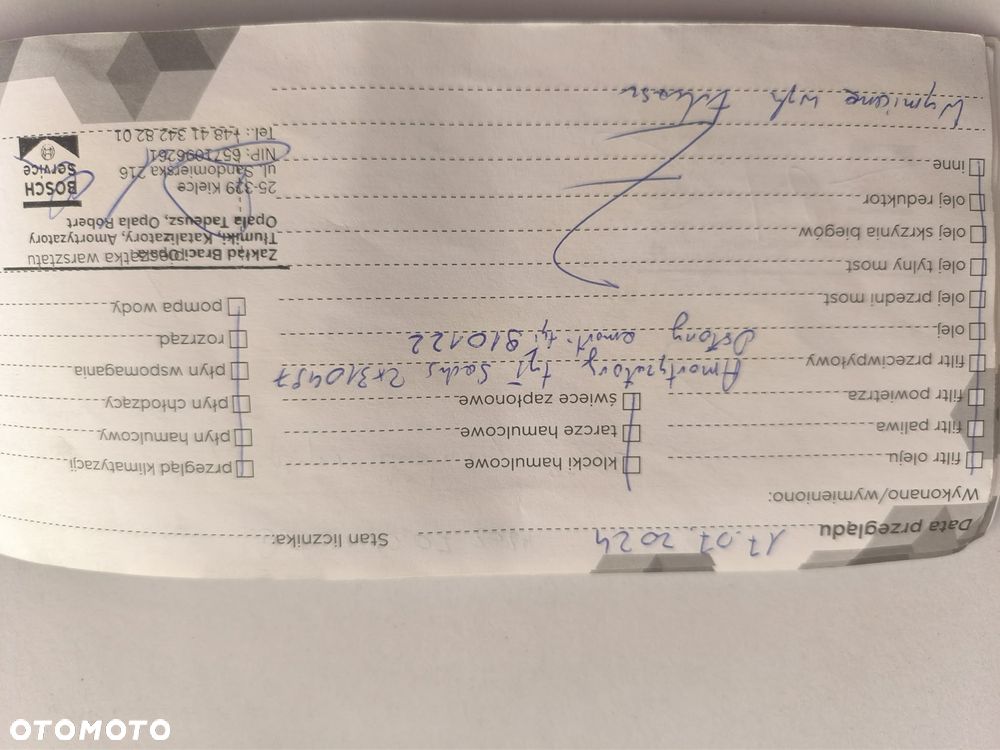 Data przeglądu 17.07.2024 Stan licznika:
Wykonano/wymieniono:
filtr oleju klocki hamulcowe przegląd klimatyzacji
filtr paliwa tarcze hamulcowe płyn hamulcowy
filtr powietrza świece zapłonowe płyn chłodzący
filtr przeciwpyłkowy Amortyzatory tył Sachs 2x310487 płyn wspomagania
olej Osłony amort. tył 910122 rozrząd
olej przedni most pompa wody
olej tylny most
olej skrzynia biegów
olej reduktor
inne
Wymianę wyk
pieczątka warsztatu
Zakład Braci Opała
Tłumiki, Katalizatory, Amortyzatory
Opała Tadeusz, Opała Robert
25-329 Kielce
ul. Sandomierska 216
NIP: 6571096261
Tel.: +48 41 342 82 01
BOSCH
Service
OTOMOTO